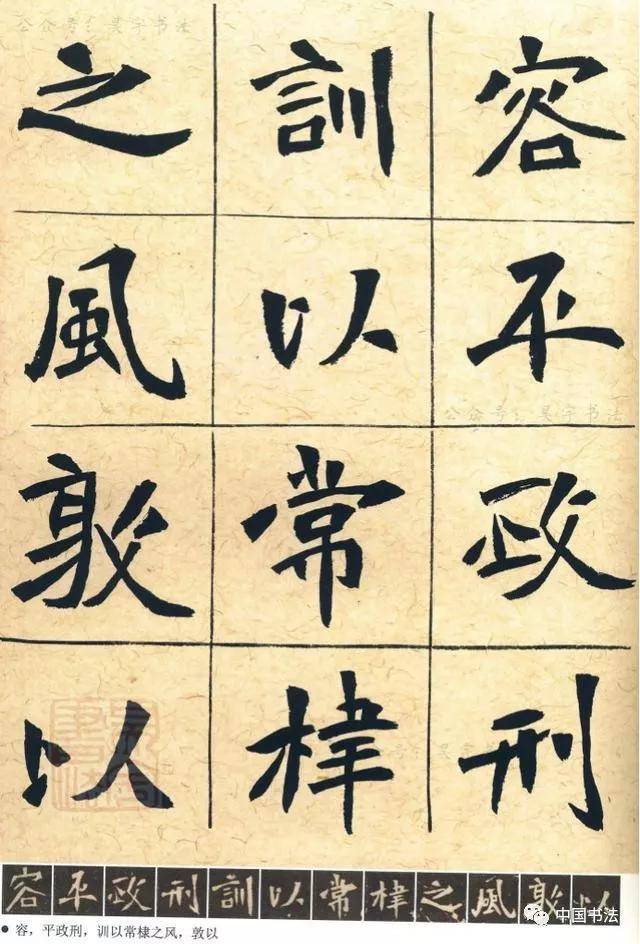 公众号：昊宇书法
容平政刑
訓以常棣
之風敦以
公众号：昊宇书法
容平政刑訓以常棣之風敦以
● 容，平政刑，训以常棣之风，敦以
中国书法